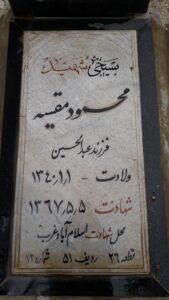 بسیجی شهید
محمود مقیسه
فرزند عبدالحسین
ولادت - ۱۳۴۰/۱/۱
شهادت ۱۳۶۷/۵/۵
محل شهادت اسلام آباد غرب
قطعه ۲۶ ردیف ۵۱ شماره ۱۳